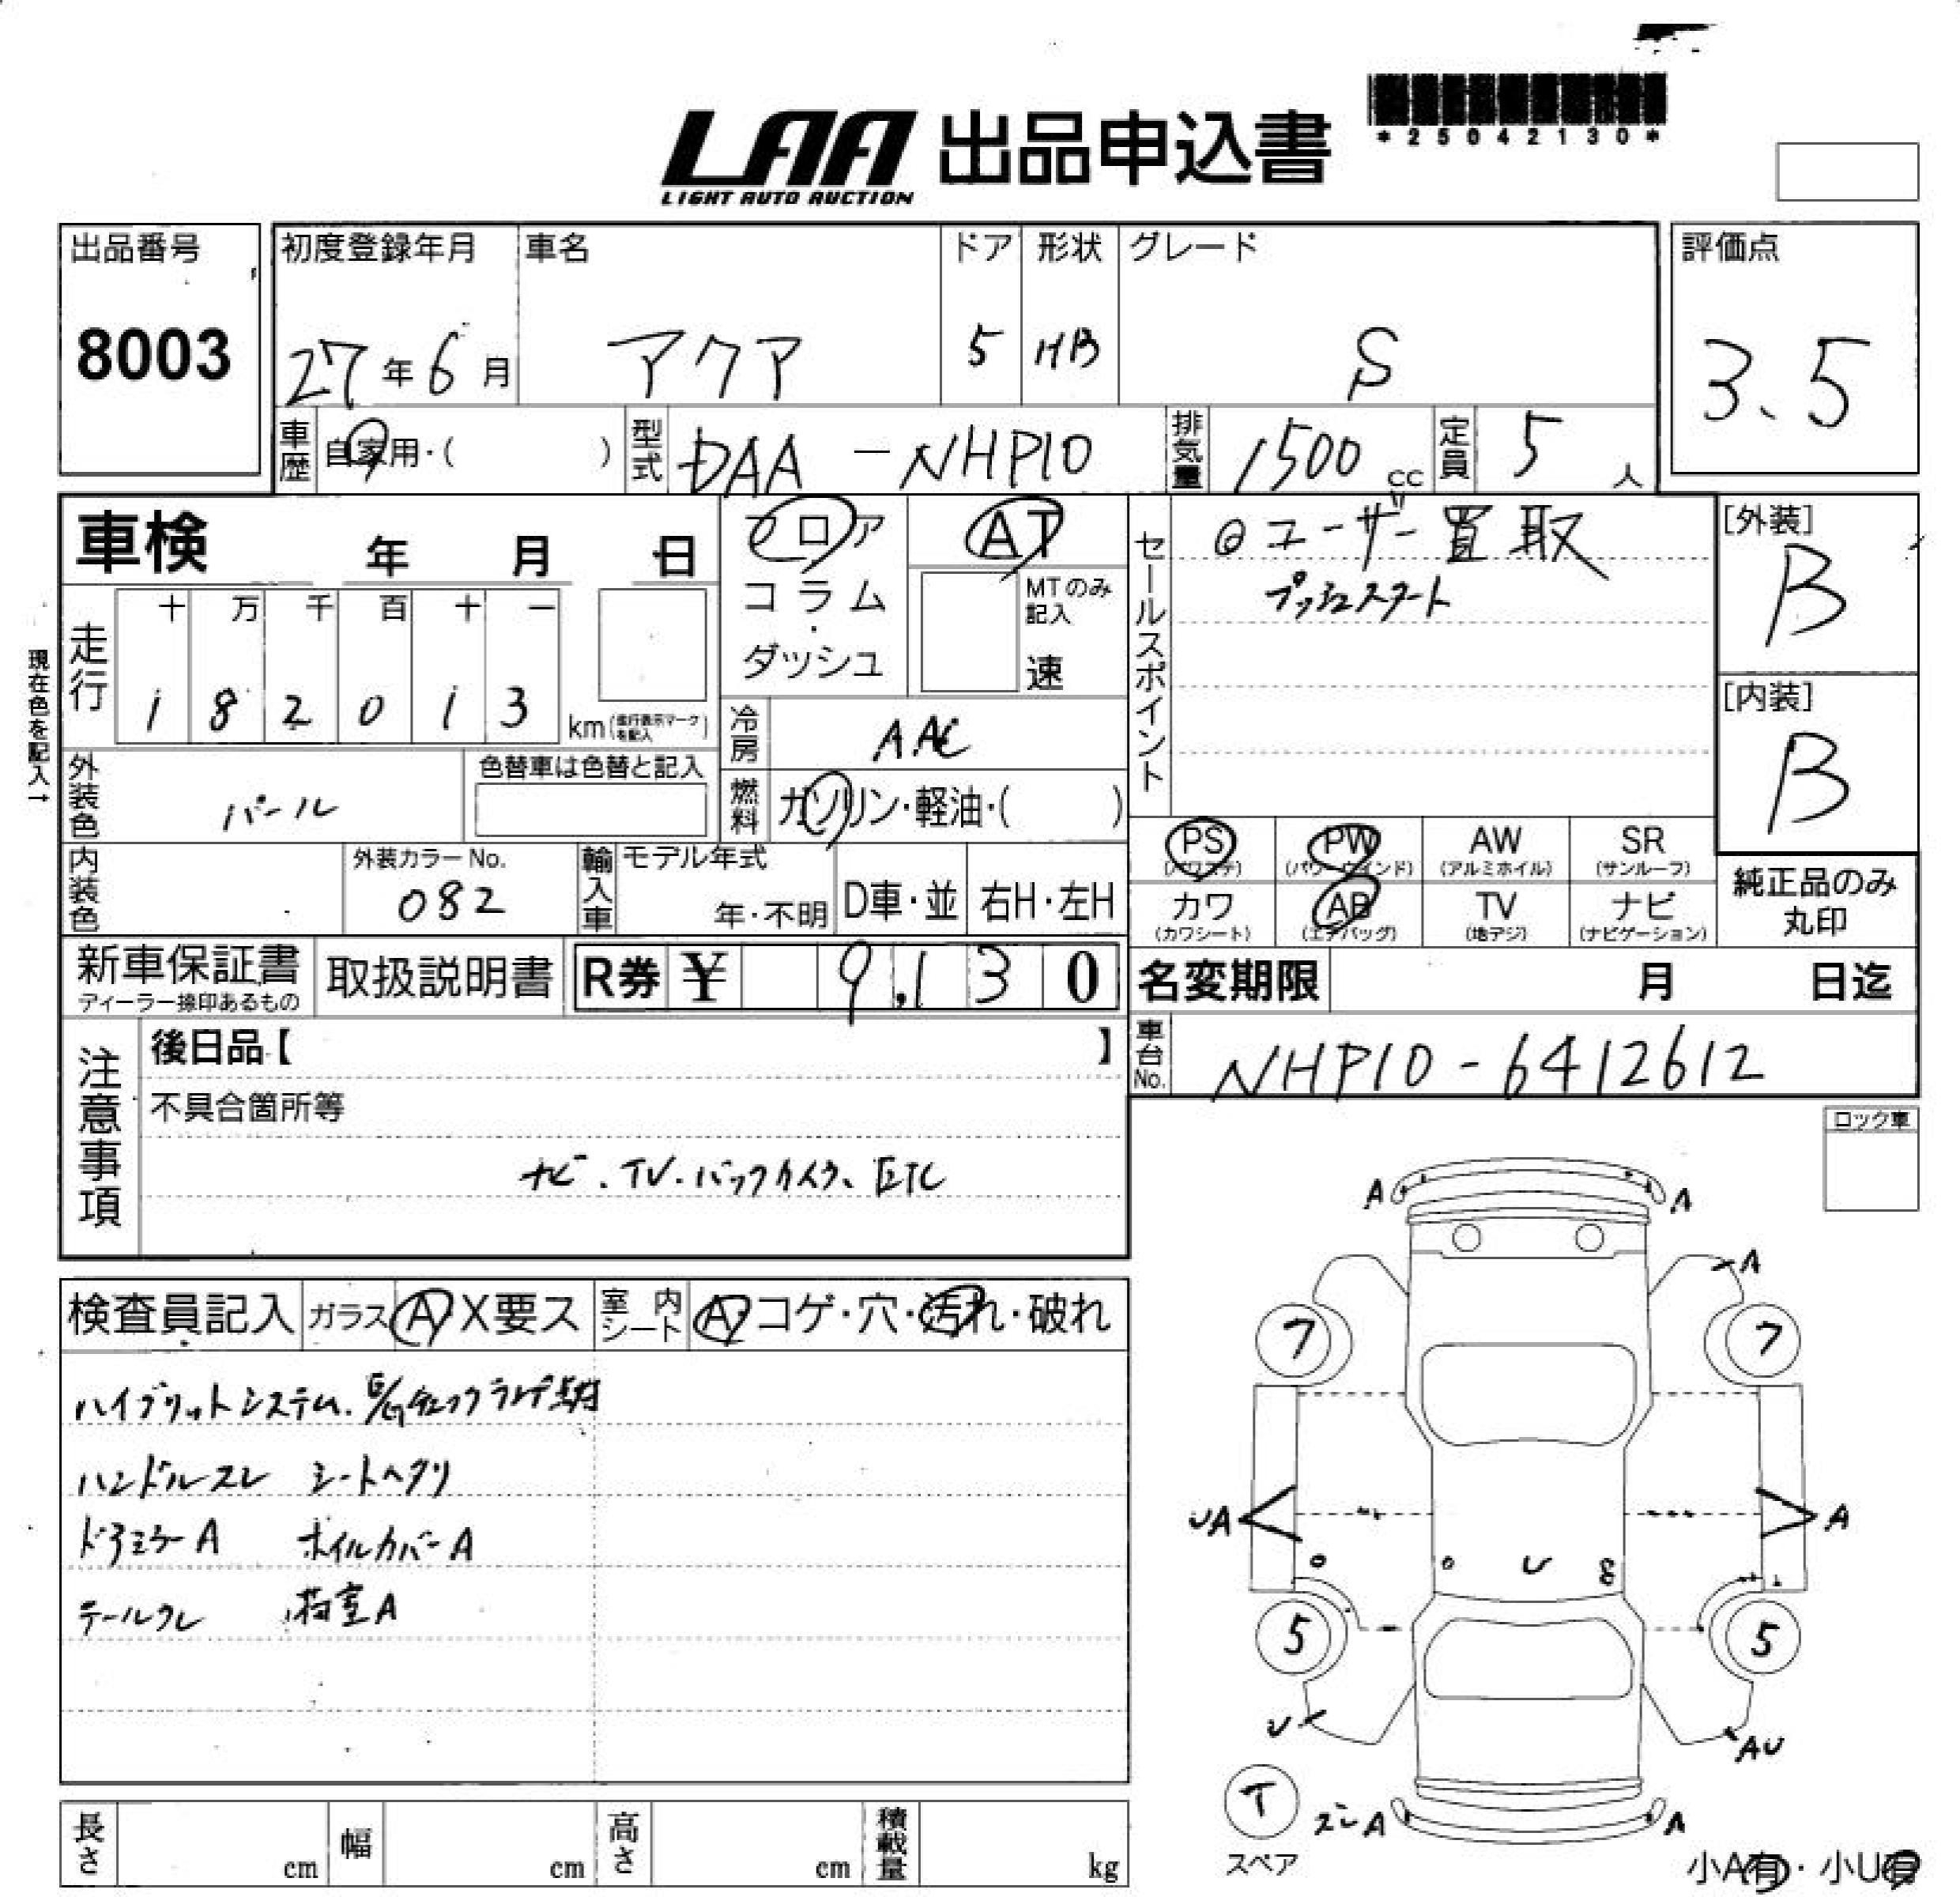 LAA 出品申込書
LIGHT AUTO AUCTION
*25042130*
出品番号
8003
初度登録年月
27年6月
車名
アクア
ドア
5
形状
HB
グレード
S
評価点
3.5
車歴 自家用・( )
型式 DAA-NHP10
排気量 1500 cc
定員 5 人
車検 年 月 日
フロア
コラム
・
ダッシュ
AT
MTのみ
記入
速
セールスポイント
◎ユーザー買取
プッシュスタート
[外装]
B
[内装]
B
現在色を記入→
走行
十 万 千 百 十 一
1 8 2 0 1 3 km(走行表示マークを記入)
冷房 AAC
外装色 パール
色替車は色替と記入
燃料 ガソリン・軽油・( )
内装色
外装カラーNo.
082
輸入車
モデル年式
年・不明
D車・並
右H・左H
PS
(パワステ)
PW
(パワーウインド)
AW
(アルミホイル)
SR
(サンルーフ)
カワ
(カワシート)
AB
(エアバッグ)
TV
(地デジ)
ナビ
(ナビゲーション)
純正品のみ
丸印
新車保証書
ディーラー捺印あるもの
取扱説明書
R券 ¥ 9,130
名変期限 月 日迄
車台No. NHP10-6412612
注意事項
後日品【 】
不具合箇所等
ナビ.TV.バックカメラ、ETC
ロック車
検査員記入
ガラス A・X要ス
室内シート A・コゲ・穴・汚れ・破れ
ハイブリットシステム.E/Gチェックランプ点灯
ハンドルスレ シートヘタリ
ドアミラーA ホイルカバーA
テールワレ 荷室A
A A
A
7 7
UA A
U
5 5
U AU
T
スペア
スレA A
小A有・小U有
長さ cm
幅 cm
高さ cm
積載量 kg